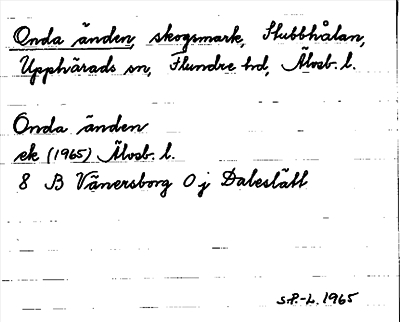 Onda änden, skogsmark, Stubbhålan,
Upphärads sn, Flundre hd, Älvsb. l.
Onda änden
ek (1965) Älvsb. l.
8 B Vänersborg 0 j Dalaslätt
S.P.-L. 1965